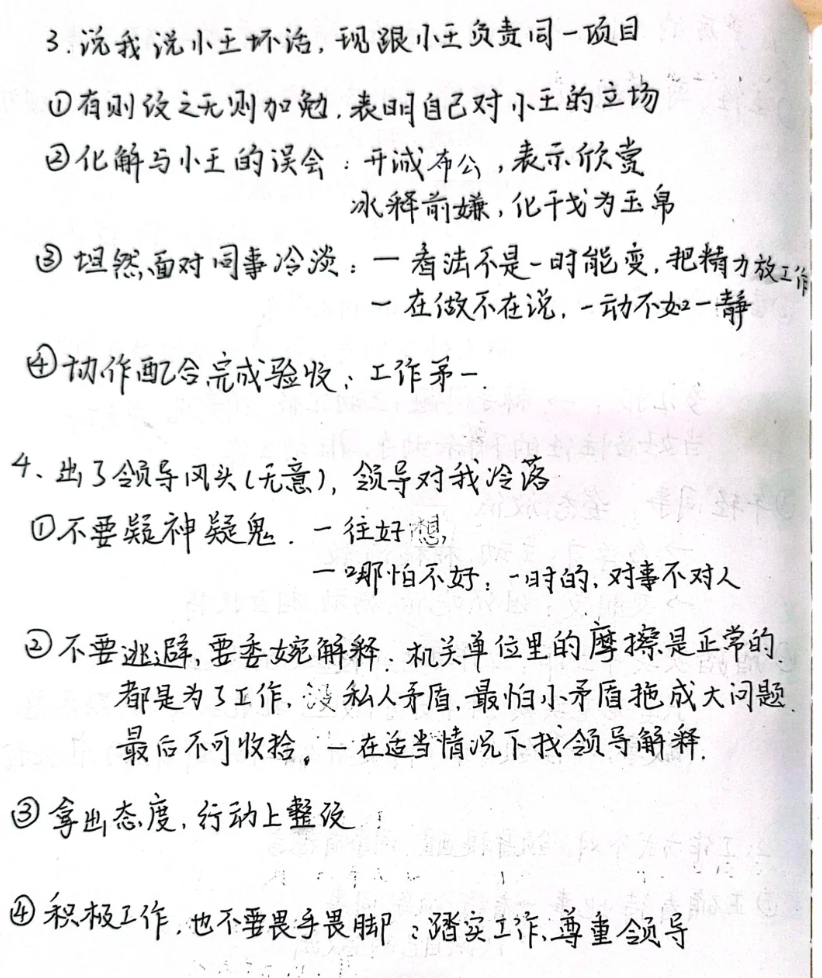 3.说我说小王坏话,现跟小王负责同一项目
①有则改之无则加勉.表明自己对小王的立场
②化解与小王的误会:开诚布公,表示欣赏
冰释前嫌,化干戈为玉帛
③坦然面对同事冷淡:一看法不是一时能变,把精力放工作
一在做不在说,一动不如一静
④协作配合完成验收:工作第一.
4、出了领导风头(无意),领导对我冷落
①不要疑神疑鬼.一往好想
一哪怕不好:一时的,对事不对人
②不要逃避,要委婉解释:机关单位里的摩擦是正常的.
都是为了工作,没私人矛盾,最怕小矛盾拖成大问题.
最后不可收拾。一在适当情况下找领导解释.
③拿出态度,行动上整改:
④积极工作,也不要畏手畏脚:踏实工作、尊重领导